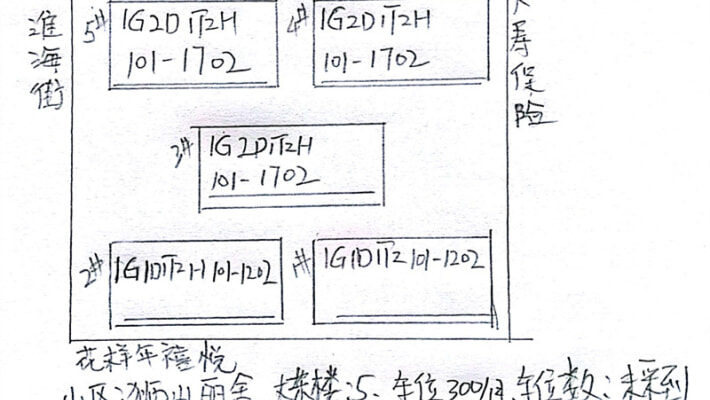 淮海街
5# 1G2D1T2H
101-1702
4# 1G2D1T2H
101-1702
寿保险
3# 1G2D1T2H
101-1702
2# 1G1D1T2H 101-1202
1# 1G1D1T2 101-1202
花样年禧悦
小区:狮山丽舍 楼:5、车位300/月、车位数:未采到